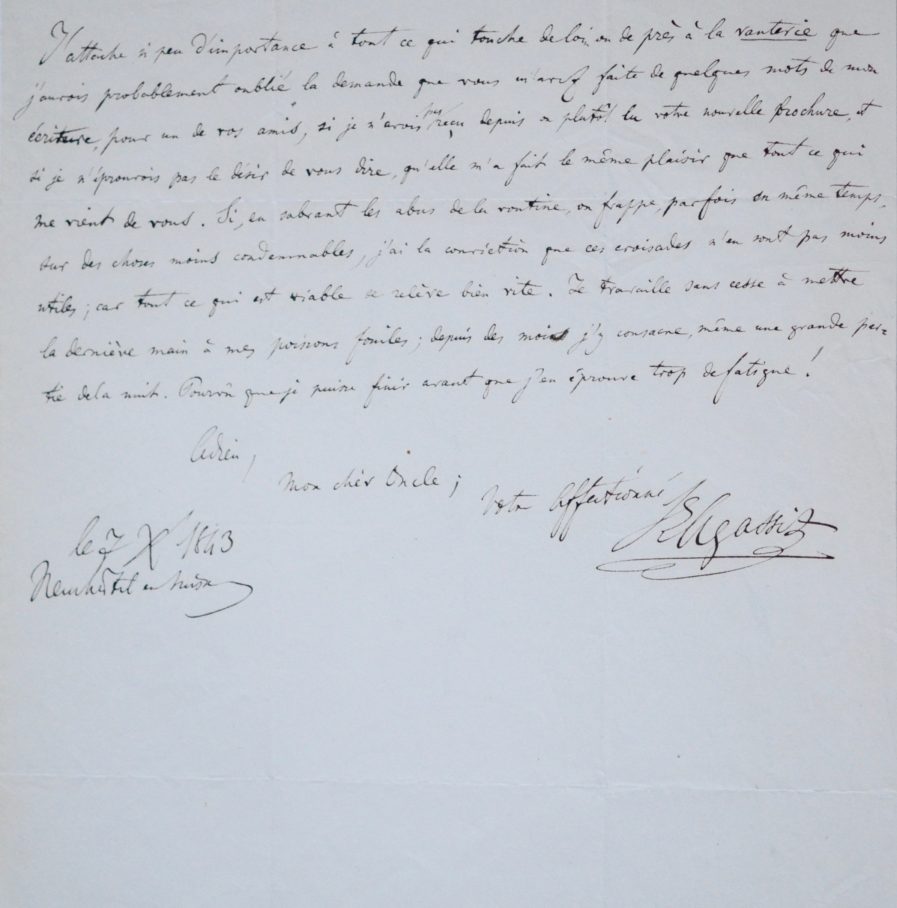 J'attache si peu d'importance à tout ce qui touche de loin ou de près à la vanterie que
j'aurois probablement oublié la demande que vous m'avez faite de quelques mots de mon
écriture, pour un de vos amis, si je n'avois pas reçu depuis ou plutôt lu votre nouvelle brochure, et
si je n'éprouvois pas le désir de vous dire, qu'elle m'a fait le même plaisir que tout ce qui
me vient de vous. Si, en sabrant les abus de la routine, on frappe, parfois en même temps,
sur des choses moins condamnables, j'ai la conviction que ces croisades n'en sont pas moins
utiles; car tout ce qui est viable se relève bien vite. Je travaille sans cesse à mettre
la dernière main à mes poissons fossiles; depuis des mois j'y consacre, même une grande par=
tie de la nuit. Pourvu que je puisse finir avant que j'en éprouve trop de fatigue!
Adieu,
mon cher Oncle;
Votre affectionné
Ls Agassiz
le 7 X 1843
Neuchâtel en Suisse